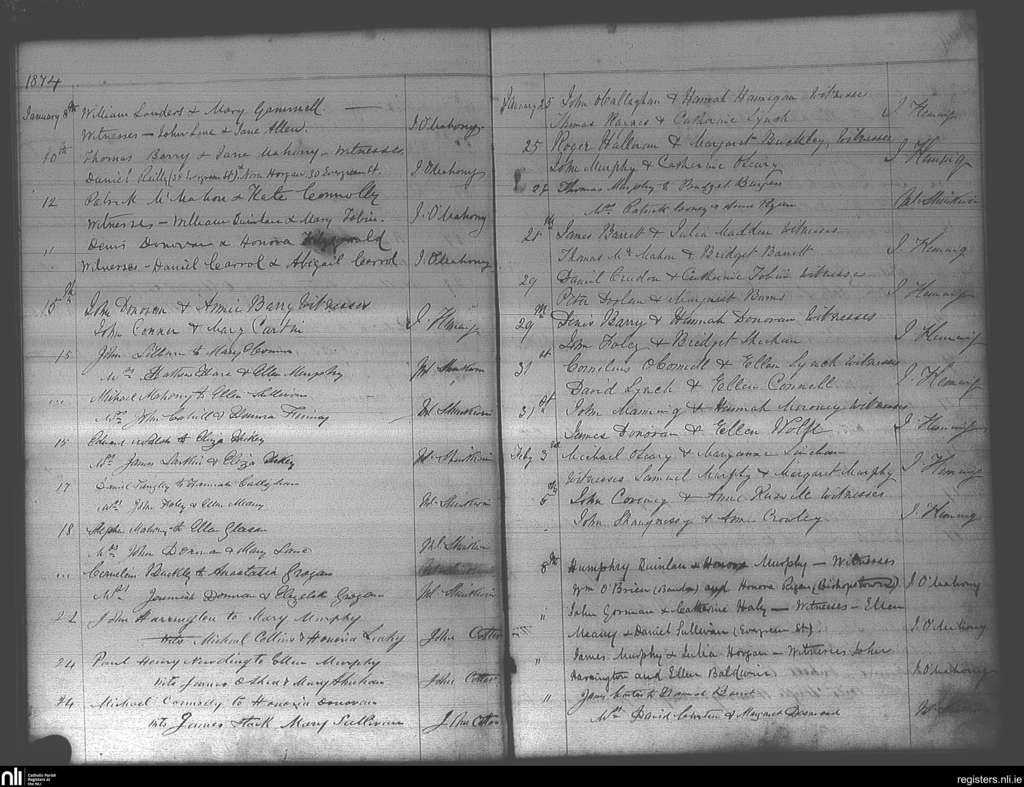 1874
January 8th William Sanders & Mary Gammell
Witnesses - John Lane & Jane Allen. J. O'Mahony
10th Thomas Barry & Jane Mahony - Witnesses
Daniel Reilly (30 Evergreen St) Nora Horgan 30 Evergreen St. J. O'Mahony
12 Patrick McMahon & Kate Connolly
Witnesses - William Quinlan & Mary Tobin J. O'Mahony
" Denis Donovan & Honora Fitzgerald
Witnesses - Daniel Carrol & Abigail Carrol J. O'Mahony
15th John Donovan & Annie Barry Witnesses
John Connor & Mary Carthy J Fleming
15 John to Mary Connor
& Ellen Murphy
Michael Mahony to Ellen Sullivan
John & Fleming
15 Edward Walsh to Eliza Hickey
James Larkin & Eliza Hickey
17 to Hannah Callaghan
John Foley & Ellen Meany
18 Stephen Mahony to Ellen Glasson
John Dorman & Mary Lane
Cornelius Buckley to Anastatia Grogan
Jeremiah Dorman & Elizabeth Grogan
22 John Harrington to Mary Murphy
Wits Michael Collins & Honoria Lucky John Cotter
24 Paul Henry to Ellen Murphy
Wits James O'Shea & Mary Sheehan John Cotter
24 Michael Comady to Honoria Donovan
Wits James Mary Sullivan John Cotter
January 25 John O'Callaghan & Hannah Hannigan Witnesse
Thomas Warnes & Catherine Lynch J Fleming
25 Roger Halloran & Margaret Buckley, Witnesses
John Murphy & Catherine Oleary J Fleming
Thomas Murphy to Bridget Burgess
Patrick & Anne Ryan
25th James Barrett & Julia Madden Witnesses
Thomas McMahon & Bridget Barrett J Fleming
29 Daniel Creedon & Catherine Tobin Witnesses
Peter Doylan & Margaret Burns J Fleming
29th Denis Barry & Hannah Donovan Witnesses
John Foley & Bridget Sheehan J Fleming
31st Cornelius O'Connell & Ellen Lynch Witnesses
David Lynch & Ellen Connell J Fleming
31st John Manning & Hannah Moroney Witnesses
James Donovan & Ellen Wolfe J Fleming
Feby 3rd Michael Oleary & Maryanne Linehan
Witnesses Samuel Murphy & Margaret Murphy J Fleming
5th John Coveney & Anne Russell Witnesses
John Shaugnessy & Ann Crowley J Fleming
8th Humphry Quinlan & Honora Murphy - Witnesses
Wm O'Brien (Bandon) and Honora Regan (Bishopstown) J O'Mahony
" John Gorman & Catherine Haly - Witnesses - Ellen
Meany & Daniel Sullivan (Evergreen St). J. O'Mahony
" James Murphy & Julia Horgan - Witnesses John
Harrington and Ellen Baldwin J. O'Mahony
"
David & Margaret Desmond
nli
Catholic Parish
Registers at
the NLI
registers.nli.ie